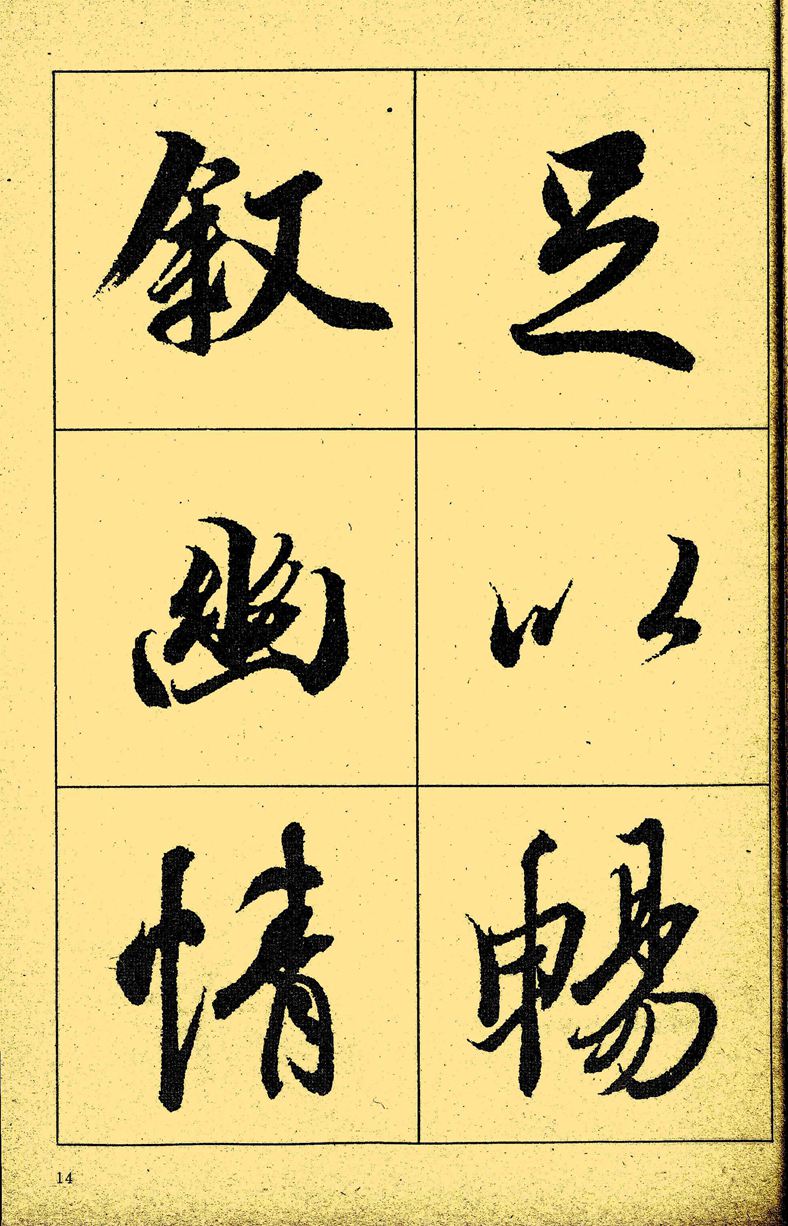 足以暢
叙幽情
14